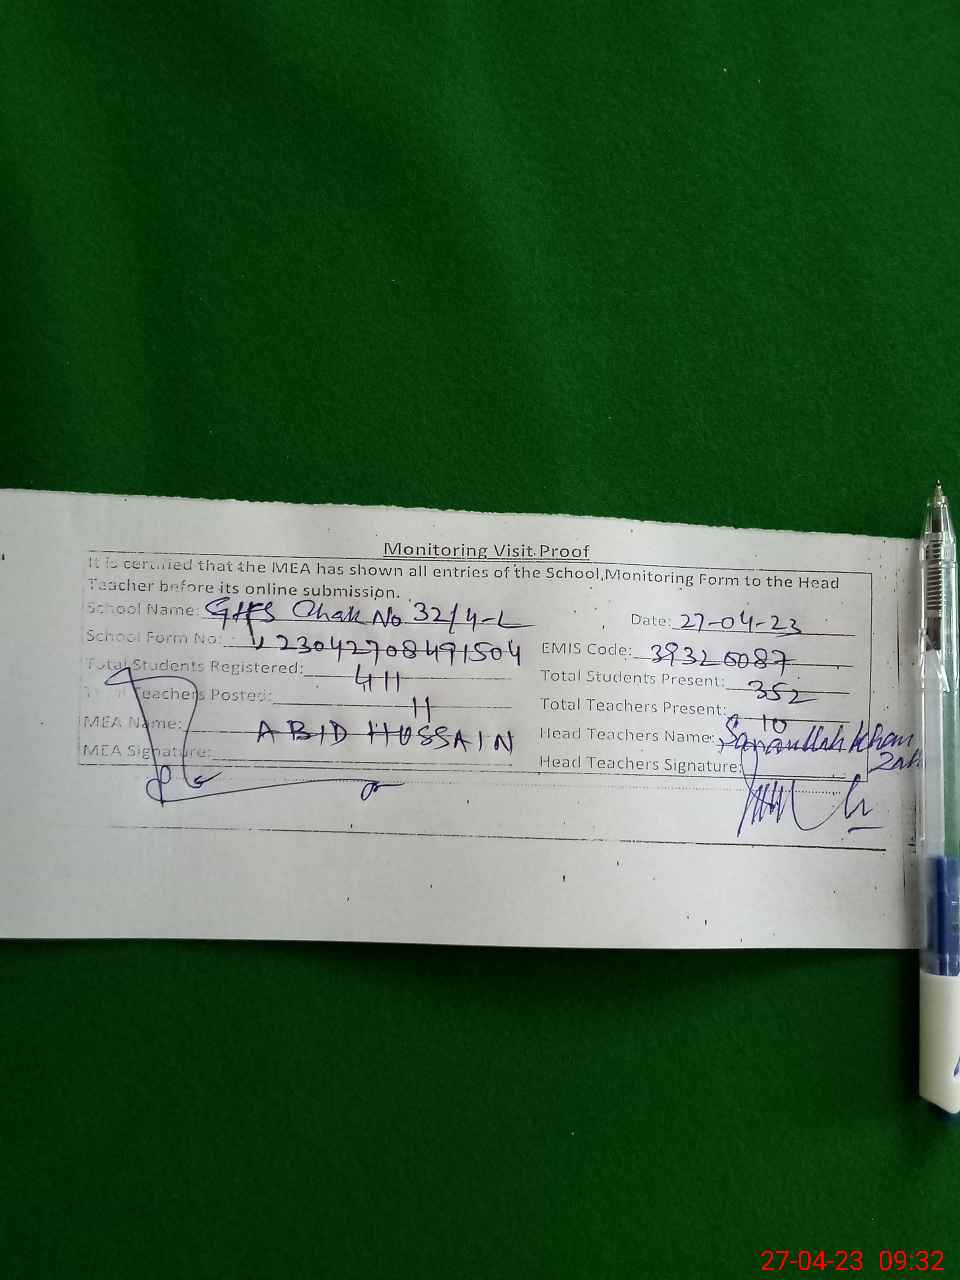 Monitoring Visit Proof
It is certified that the MEA has shown all entries of the School,Monitoring Form to the Head
Teacher before its online submission.
School Name: GHS Chak No 32/4-L Date: 27-04-23
School Form No: 23042708491504 EMIS Code: 39326087
Total Students Registered: 411 Total Students Present: 352
Total Teachers Posted: 11 Total Teachers Present: 10
MEA Name: ABID HUSSAIN Head Teachers Name: Sanaullah Khan
MEA Signature: Head Teachers Signature:
27-04-23 09:32